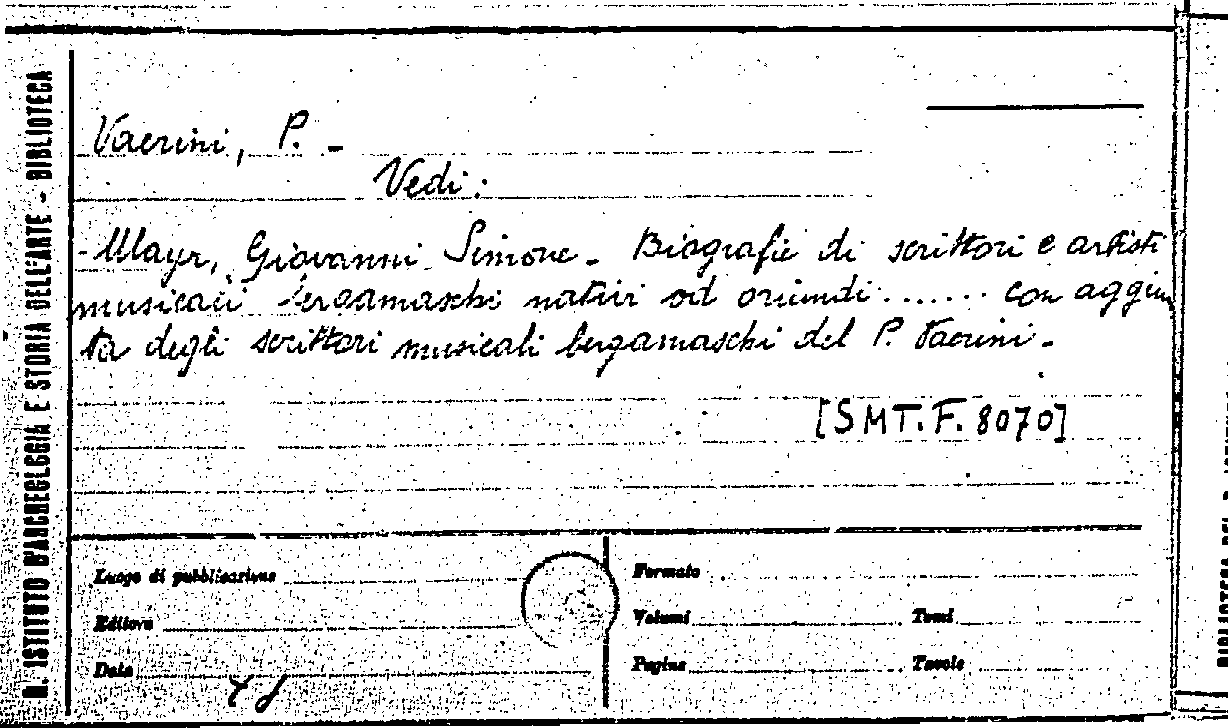 R. ISTITUTO D'ARCHEOLOGIA E STORIA DELL'ARTE - BIBLIOTECA
Vaerini, P. -
Vedi:
- Mayr, Giovanni Simone - Biografie di scrittori e artisti
musicali bergamaschi nativi od oriundi ....... con aggiun
ta degli scrittori musicali bergamaschi del P. Vaerini -
[SMT.F. 8070]
Luogo di pubblicazione
Editore
Data
Formato
Volumi Tomi
Pagine Tavole